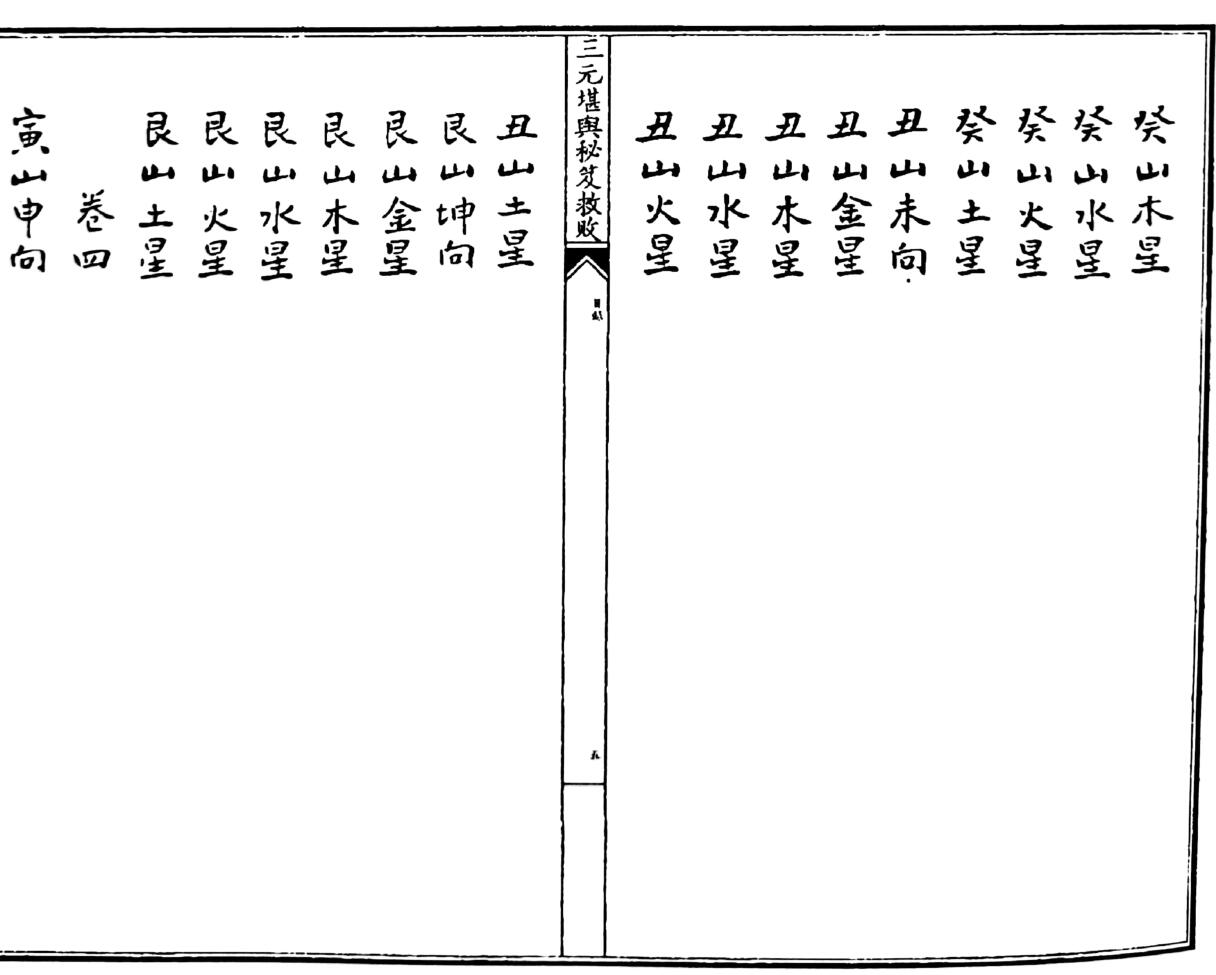 癸山木星
癸山水星
癸山火星
癸山土星
丑山未向
丑山金星
丑山木星
丑山水星
丑山火星
三元堪輿秘笈救敗
目錄
五
丑山土星
艮山坤向
艮山金星
艮山木星
艮山水星
艮山火星
艮山土星
卷四
寅山申向